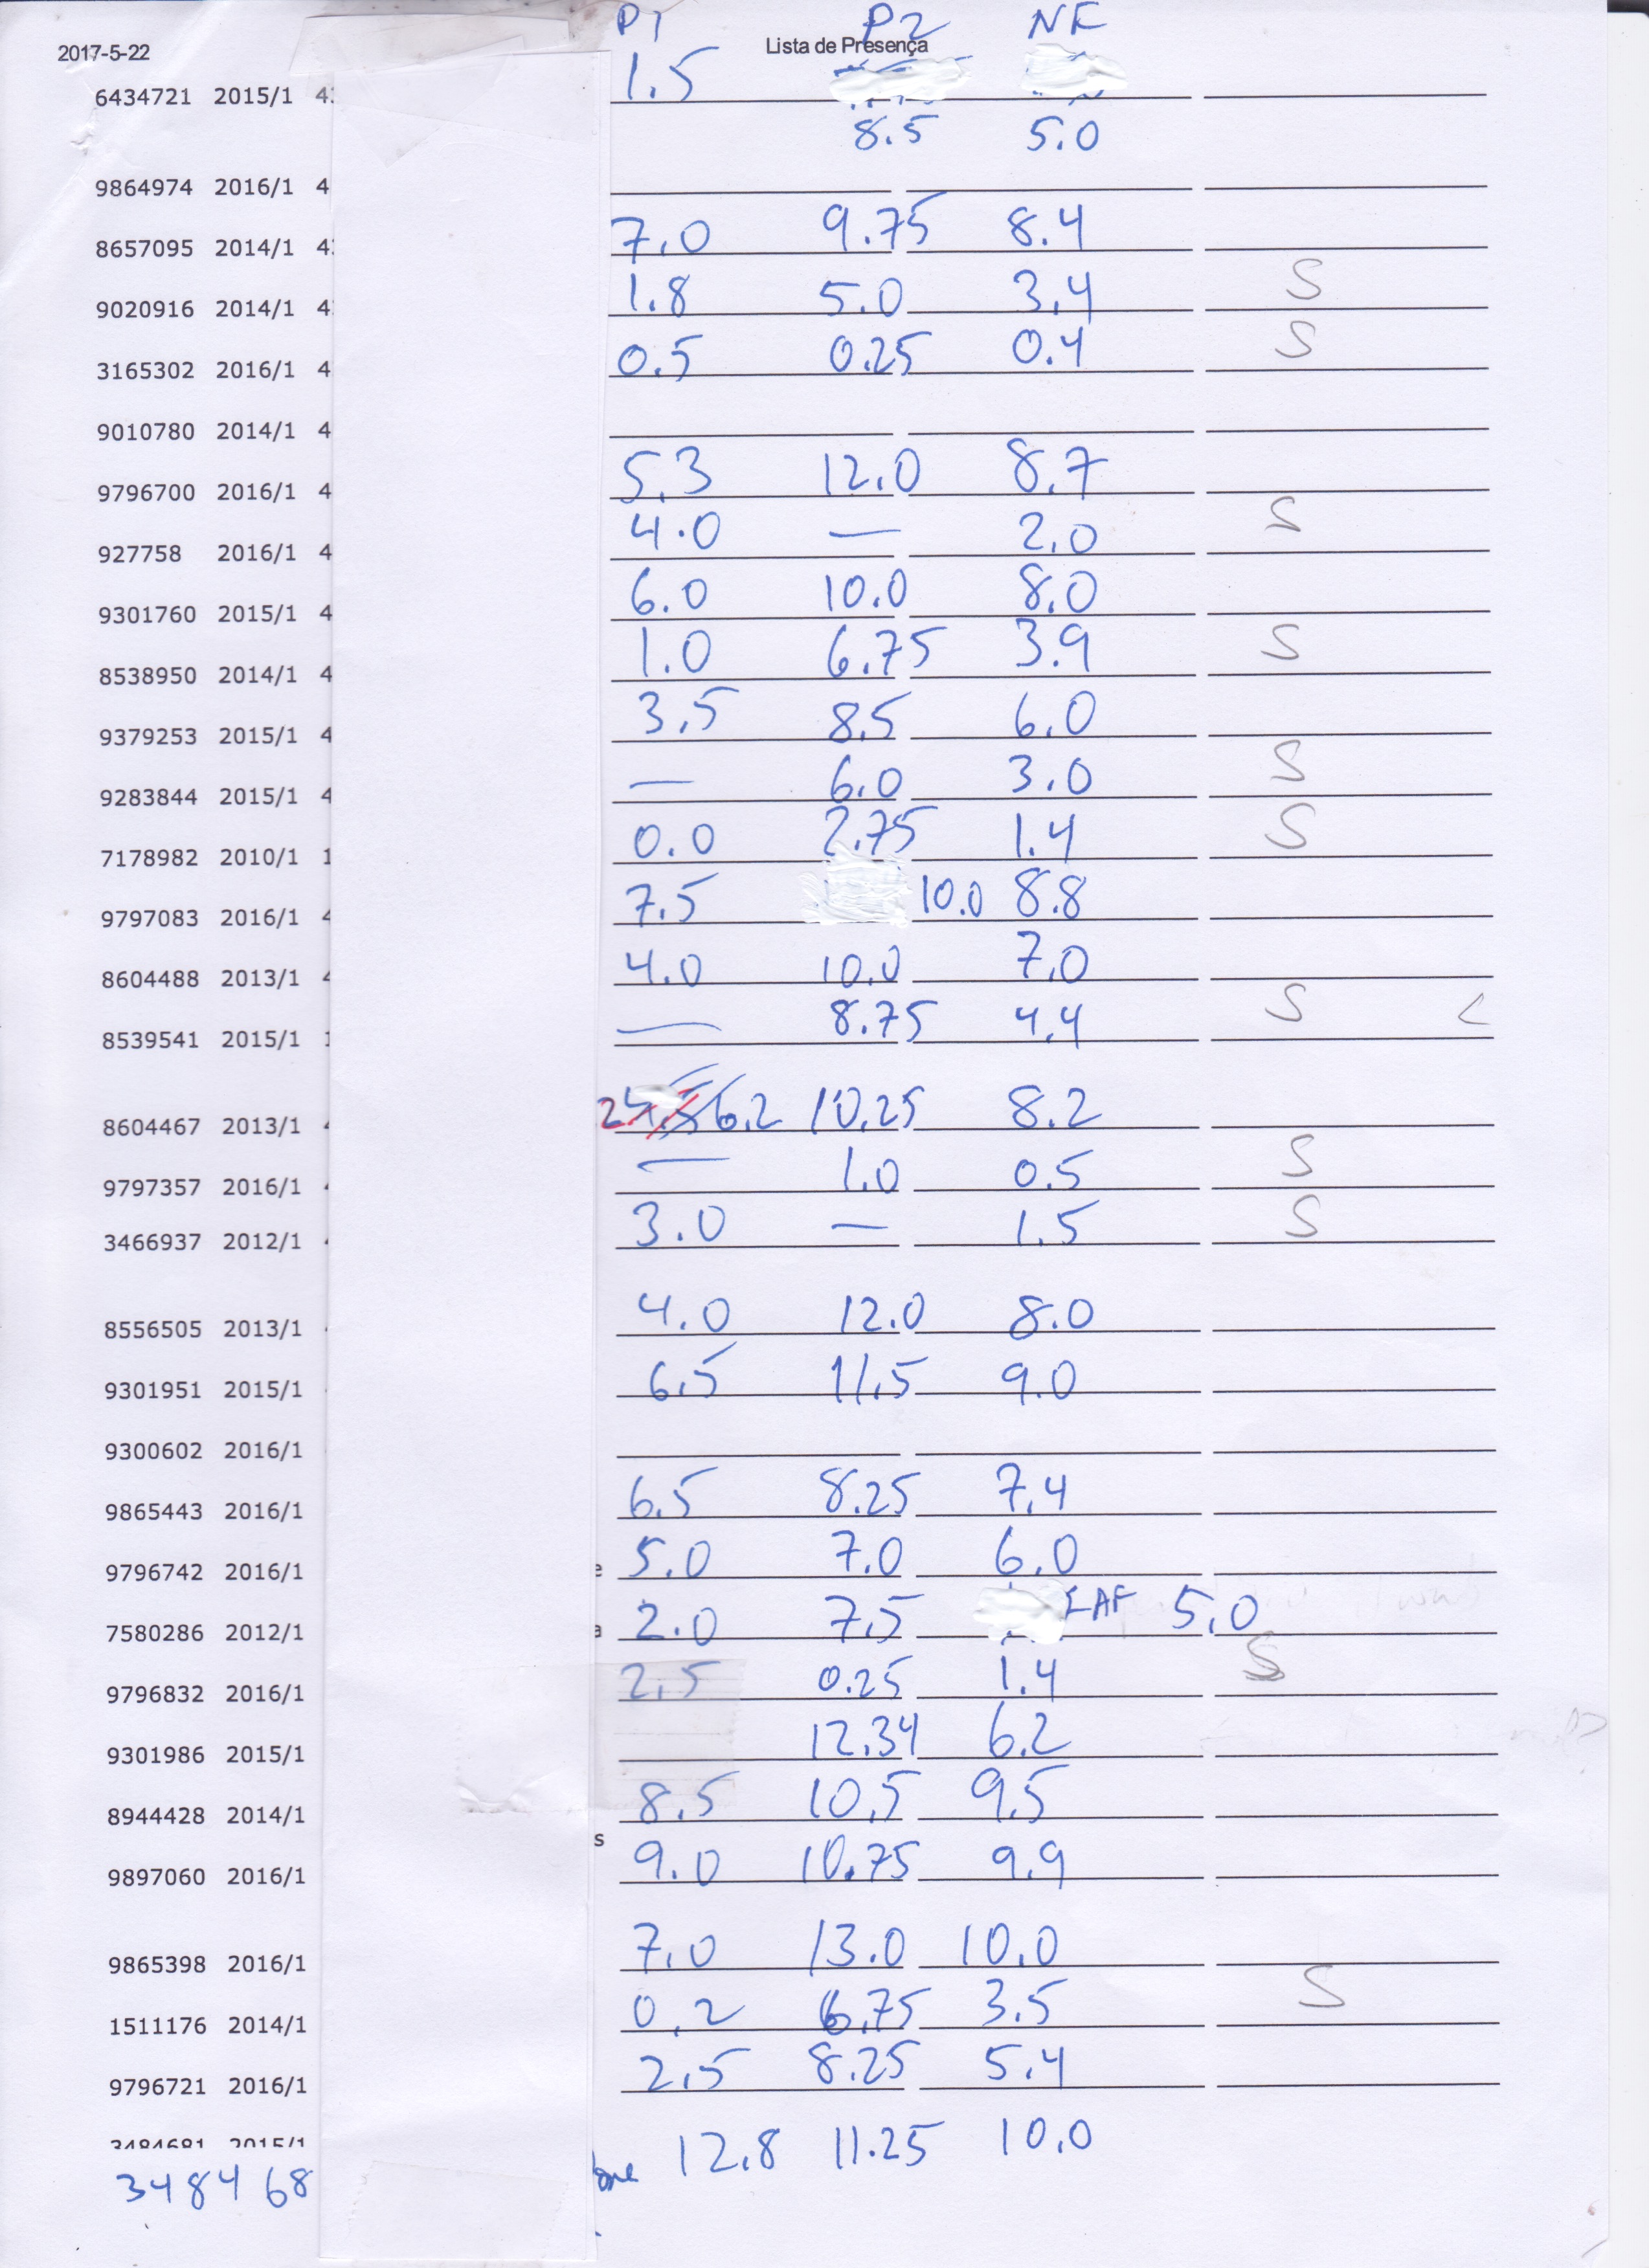 P1 P2 NF
2017-5-22 Lista de Presença
6434721 2015/1 1.5
8.5 5.0
9864974 2016/1 4
8657095 2014/1 4 7.0 9.75 8.4
9020916 2014/1 4 1.8 5.0 3.4 S
3165302 2016/1 4 0.5 0.25 0.4 S
9010780 2014/1 4
9796700 2016/1 4 5.3 12.0 8.7
927758 2016/1 4 4.0 — 2.0 S
9301760 2015/1 4 6.0 10.0 8.0
8538950 2014/1 4 1.0 6.75 3.9 S
9379253 2015/1 4 3.5 8.5 6.0
9283844 2015/1 4 — 6.0 3.0 S
7178982 2010/1 1 0.0 2.75 1.4 S
9797083 2016/1 4 7.5 10.0 8.8
8604488 2013/1 4.0 10.0 7.0
8539541 2015/1 — 8.75 4.4 S
8604467 2013/1 6.2 10.25 8.2
9797357 2016/1 — 1.0 0.5 S
3466937 2012/1 3.0 — 1.5 S
8556505 2013/1 4.0 12.0 8.0
9301951 2015/1 6.5 11.5 9.0
9300602 2016/1
9865443 2016/1 6.5 8.25 7.4
9796742 2016/1 e 5.0 7.0 6.0
7580286 2012/1 a 2.0 7.5 EAF 5.0
9796832 2016/1 2.5 0.25 1.4 S
9301986 2015/1 12.34 6.2
8944428 2014/1 8.5 10.5 9.5
s
9897060 2016/1 9.0 10.75 9.9
9865398 2016/1 7.0 13.0 10.0
1511176 2014/1 0.2 6.75 3.5 S
9796721 2016/1 2.5 8.25 5.4
3484681 2015/1 12.8 11.25 10.0
348468